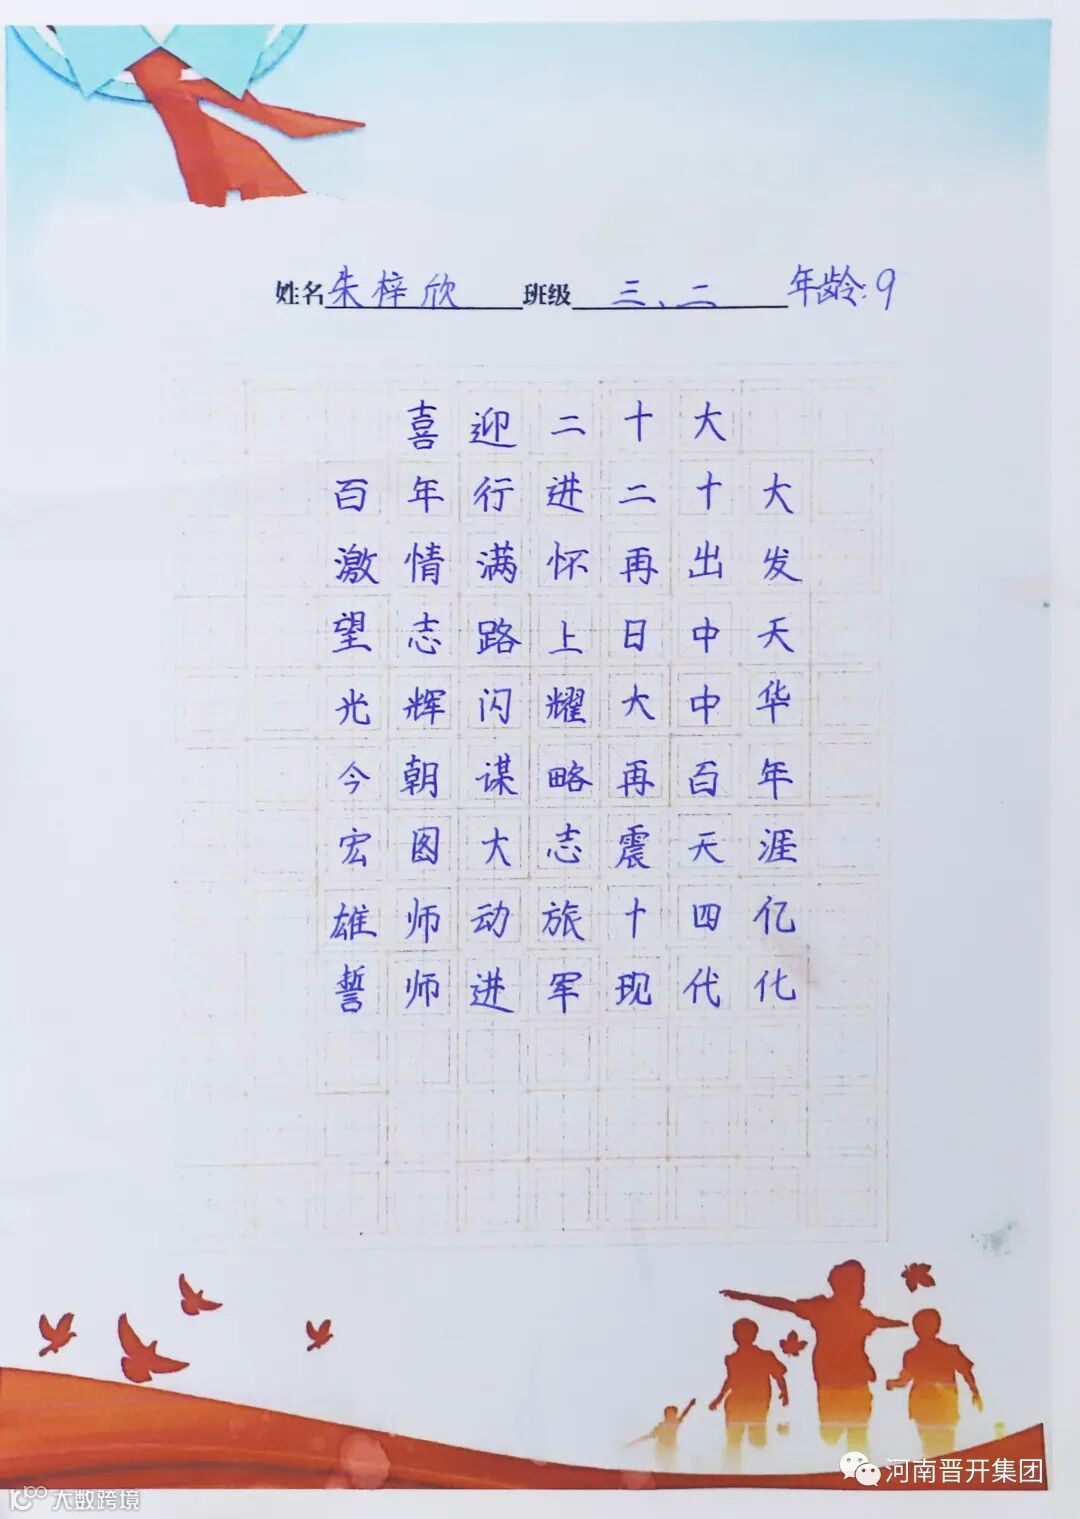 姓名朱梓欣 班级 三、二 年龄:9
喜迎二十大
百年行进二十大
激情满怀再出发
望志路上日中天
光辉闪耀大中华
今朝谋略再百年
宏图大志震天涯
雄师动旅十四亿
誓师进军现代化
河南晋开集团
大数跨境